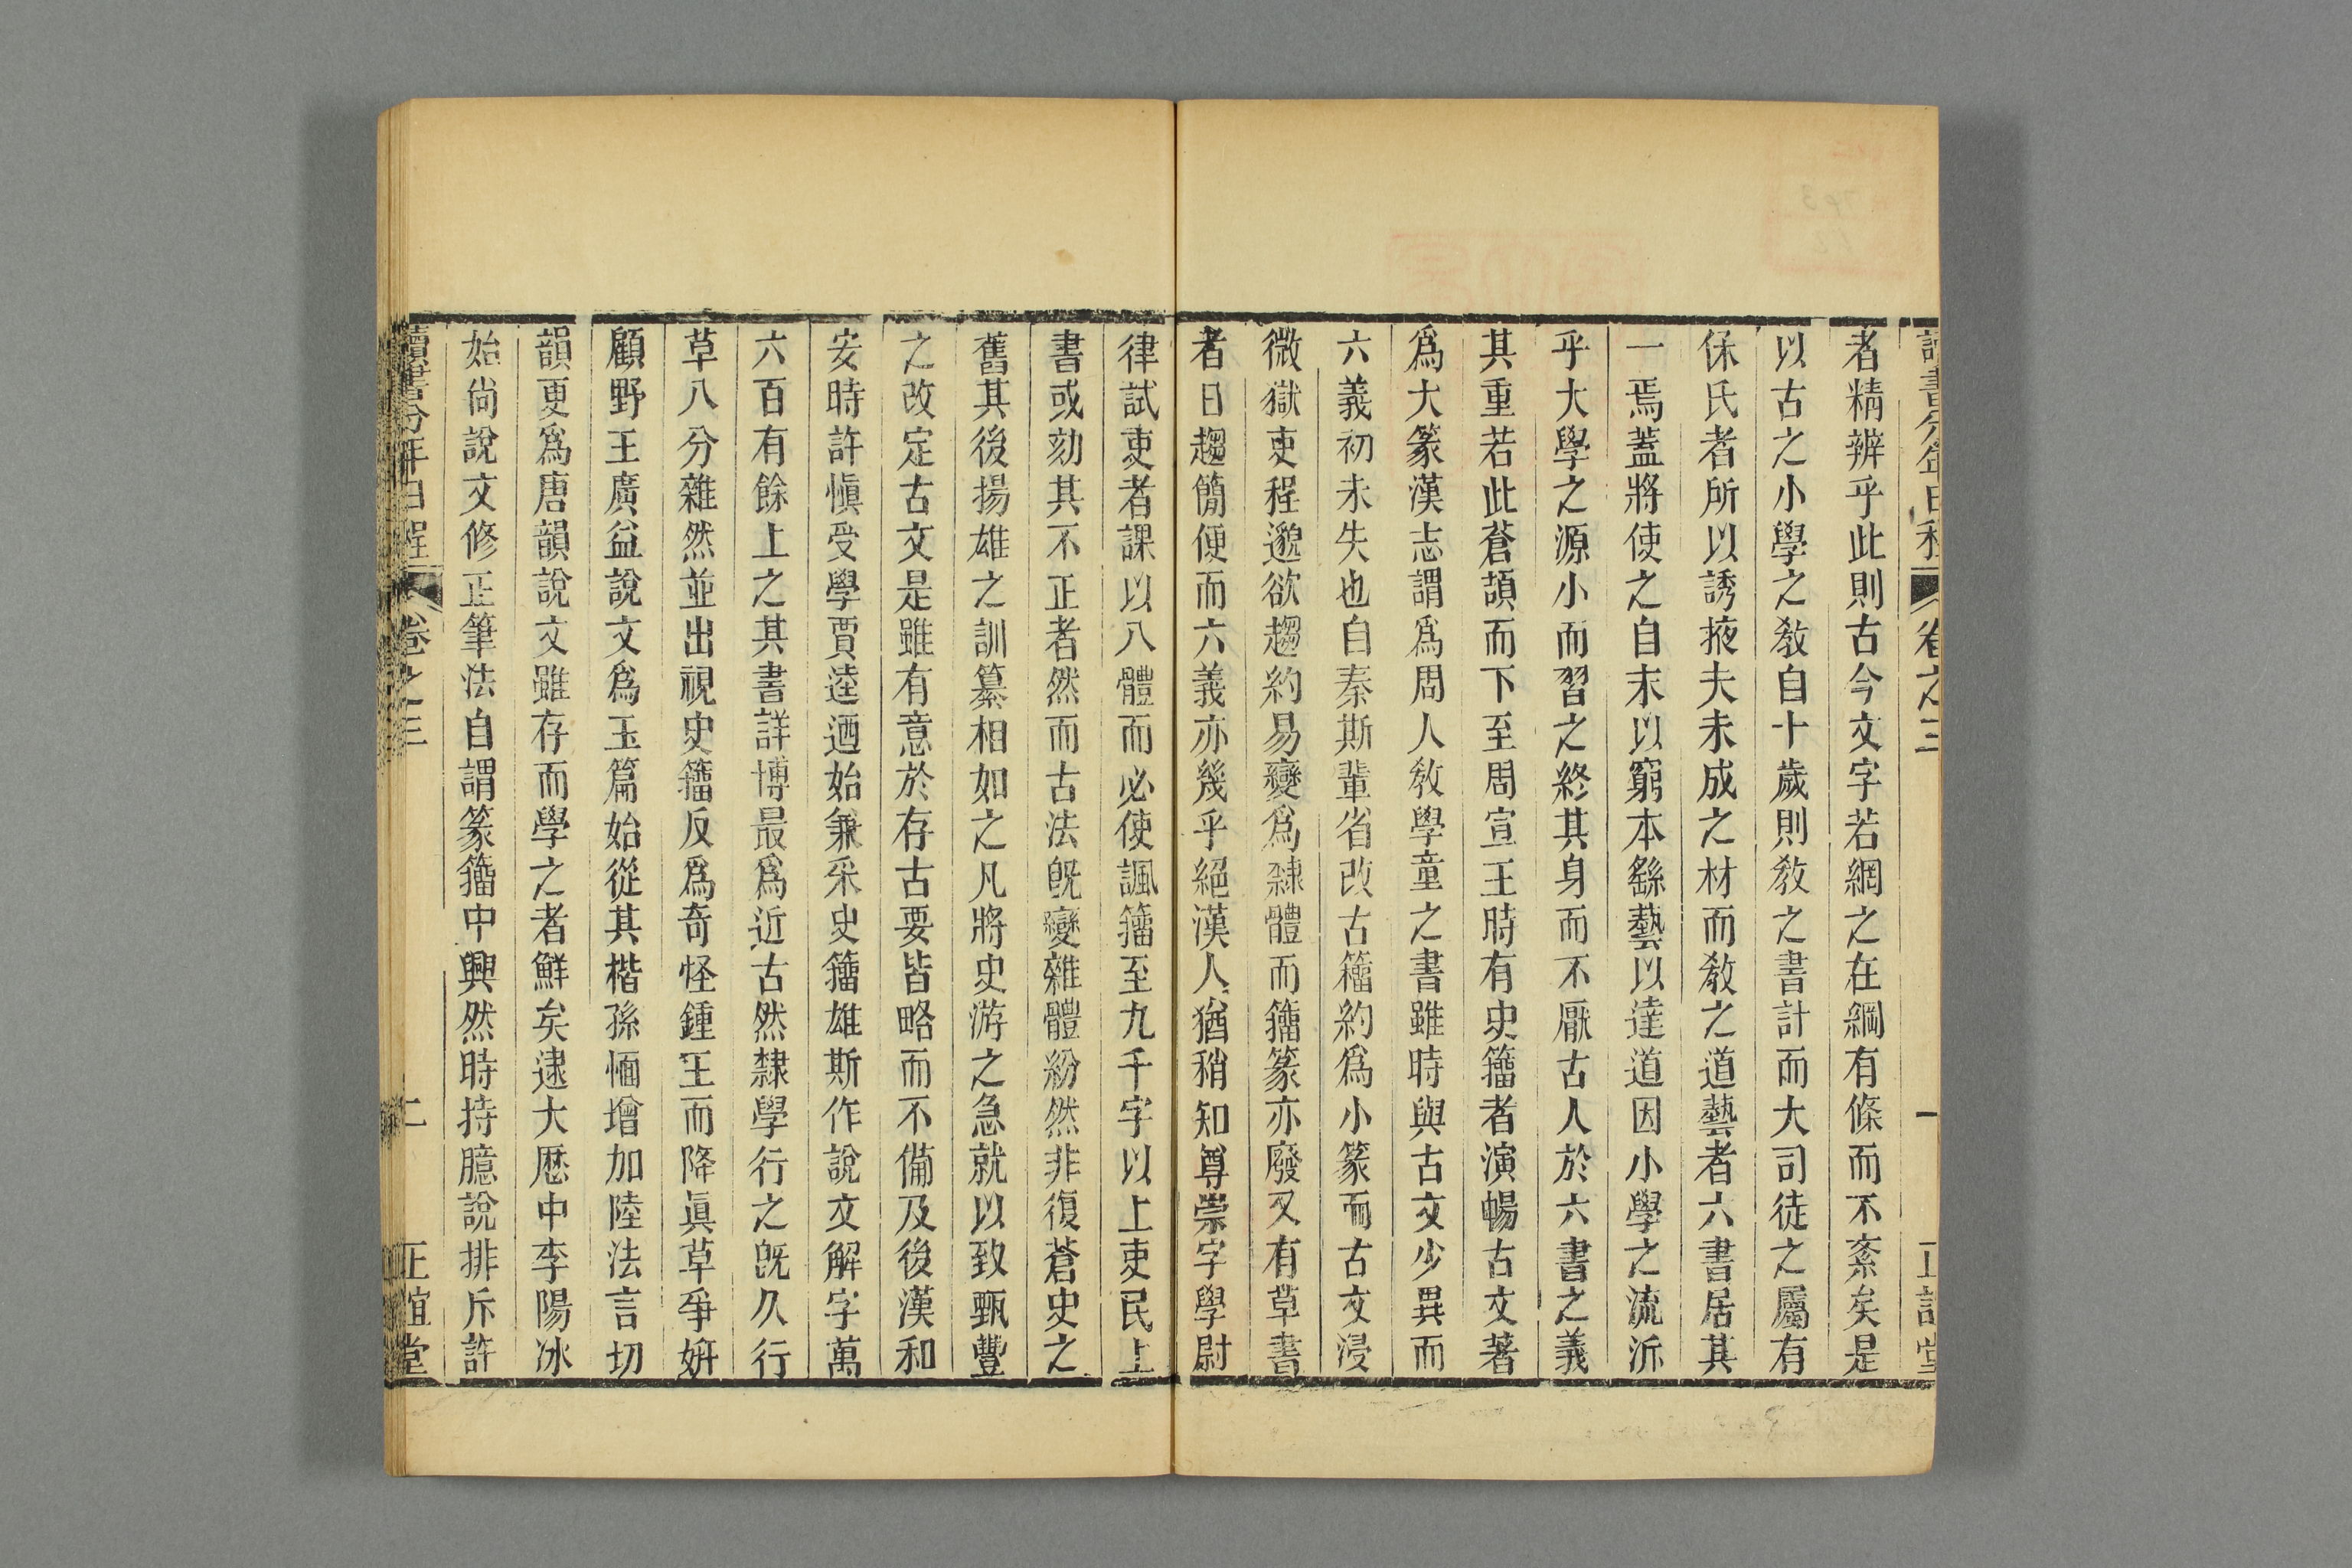 讀書分年日程 卷之三 一 正誼堂
者精辨乎此則古今文字若網之在綱有條而不紊矣是
以古之小學之敎自十歲則敎之書計而大司徒之屬有
保氏者所以誘掖夫未成之材而敎之道藝者六書居其
一焉蓋將使之自末以窮本繇藝以達道因小學之流泝
乎大學之源小而習之終其身而不厭古人於六書之義
其重若此蒼頡而下至周宣王時有史籀者演暢古文著
爲大篆漢志謂爲周人敎學童之書雖時與古文少異而
六義初未失也自秦斯輩省改古籀約爲小篆而古文浸
微獄吏程邈欲趨約易變爲隸體而籀篆亦廢又有草書
者日趨簡便而六義亦幾乎絕漢人猶稍知尊崇字學尉
律試吏者課以八體而必使諷籀至九千字以上吏民上
書或劾其不正者然而古法旣變雜體紛然非復蒼史之
舊其後揚雄之訓纂相如之凡將史游之急就以致甄豐
之改定古文是雖有意於存古要皆略而不備及後漢和
安時許愼受學賈逵迺始兼采史籀雄斯作說文解字萬
六百有餘上之其書詳博最爲近古然隸學行之旣久行
草八分雜然並出視史籀反爲奇怪鍾王而降眞草爭妍
顧野王廣益說文爲玉篇始從其楷孫愐增加陸法言切
韻更爲唐韻說文雖存而學之者鮮矣逮大厯中李陽冰
始尙說文修正筆法自謂篆籀中興然時持臆說排斥許
讀書分年日程 卷之三 二 正誼堂